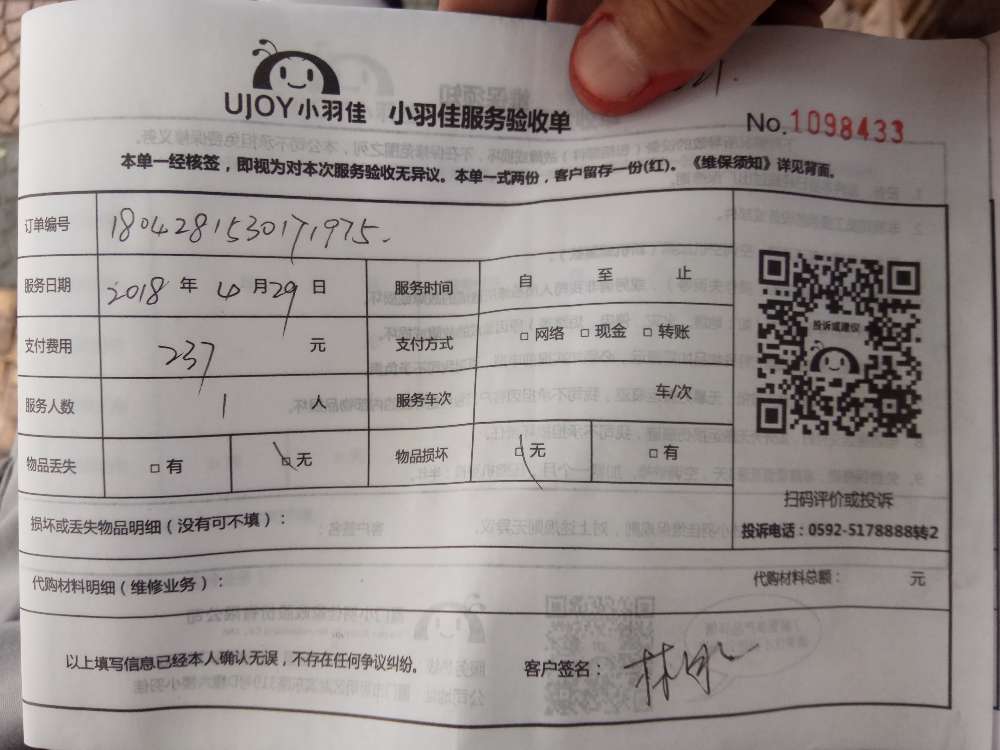 UJOY小羽佳 小羽佳服务验收单
No.1098433
本单一经核签，即视为对本次服务验收无异议。本单一式两份，客户留存一份(红)。《维保须知》详见背面。
订单编号 1804281530171975.
服务日期 2018年4月29日 服务时间 自 至 止
支付费用 237 元 支付方式 □网络 □现金 □转账
投诉或建议
服务人数 1 人 服务车次 车/次
物品丢失 □有 □无 物品损坏 □无 □有
扫码评价或投诉
损坏或丢失物品明细（没有可不填）：
投诉电话：0592-5178888转2
代购材料明细（维修业务）： 代购材料总额： 元
以上填写信息已经本人确认无误，不存在任何争议纠纷。 客户签名：林